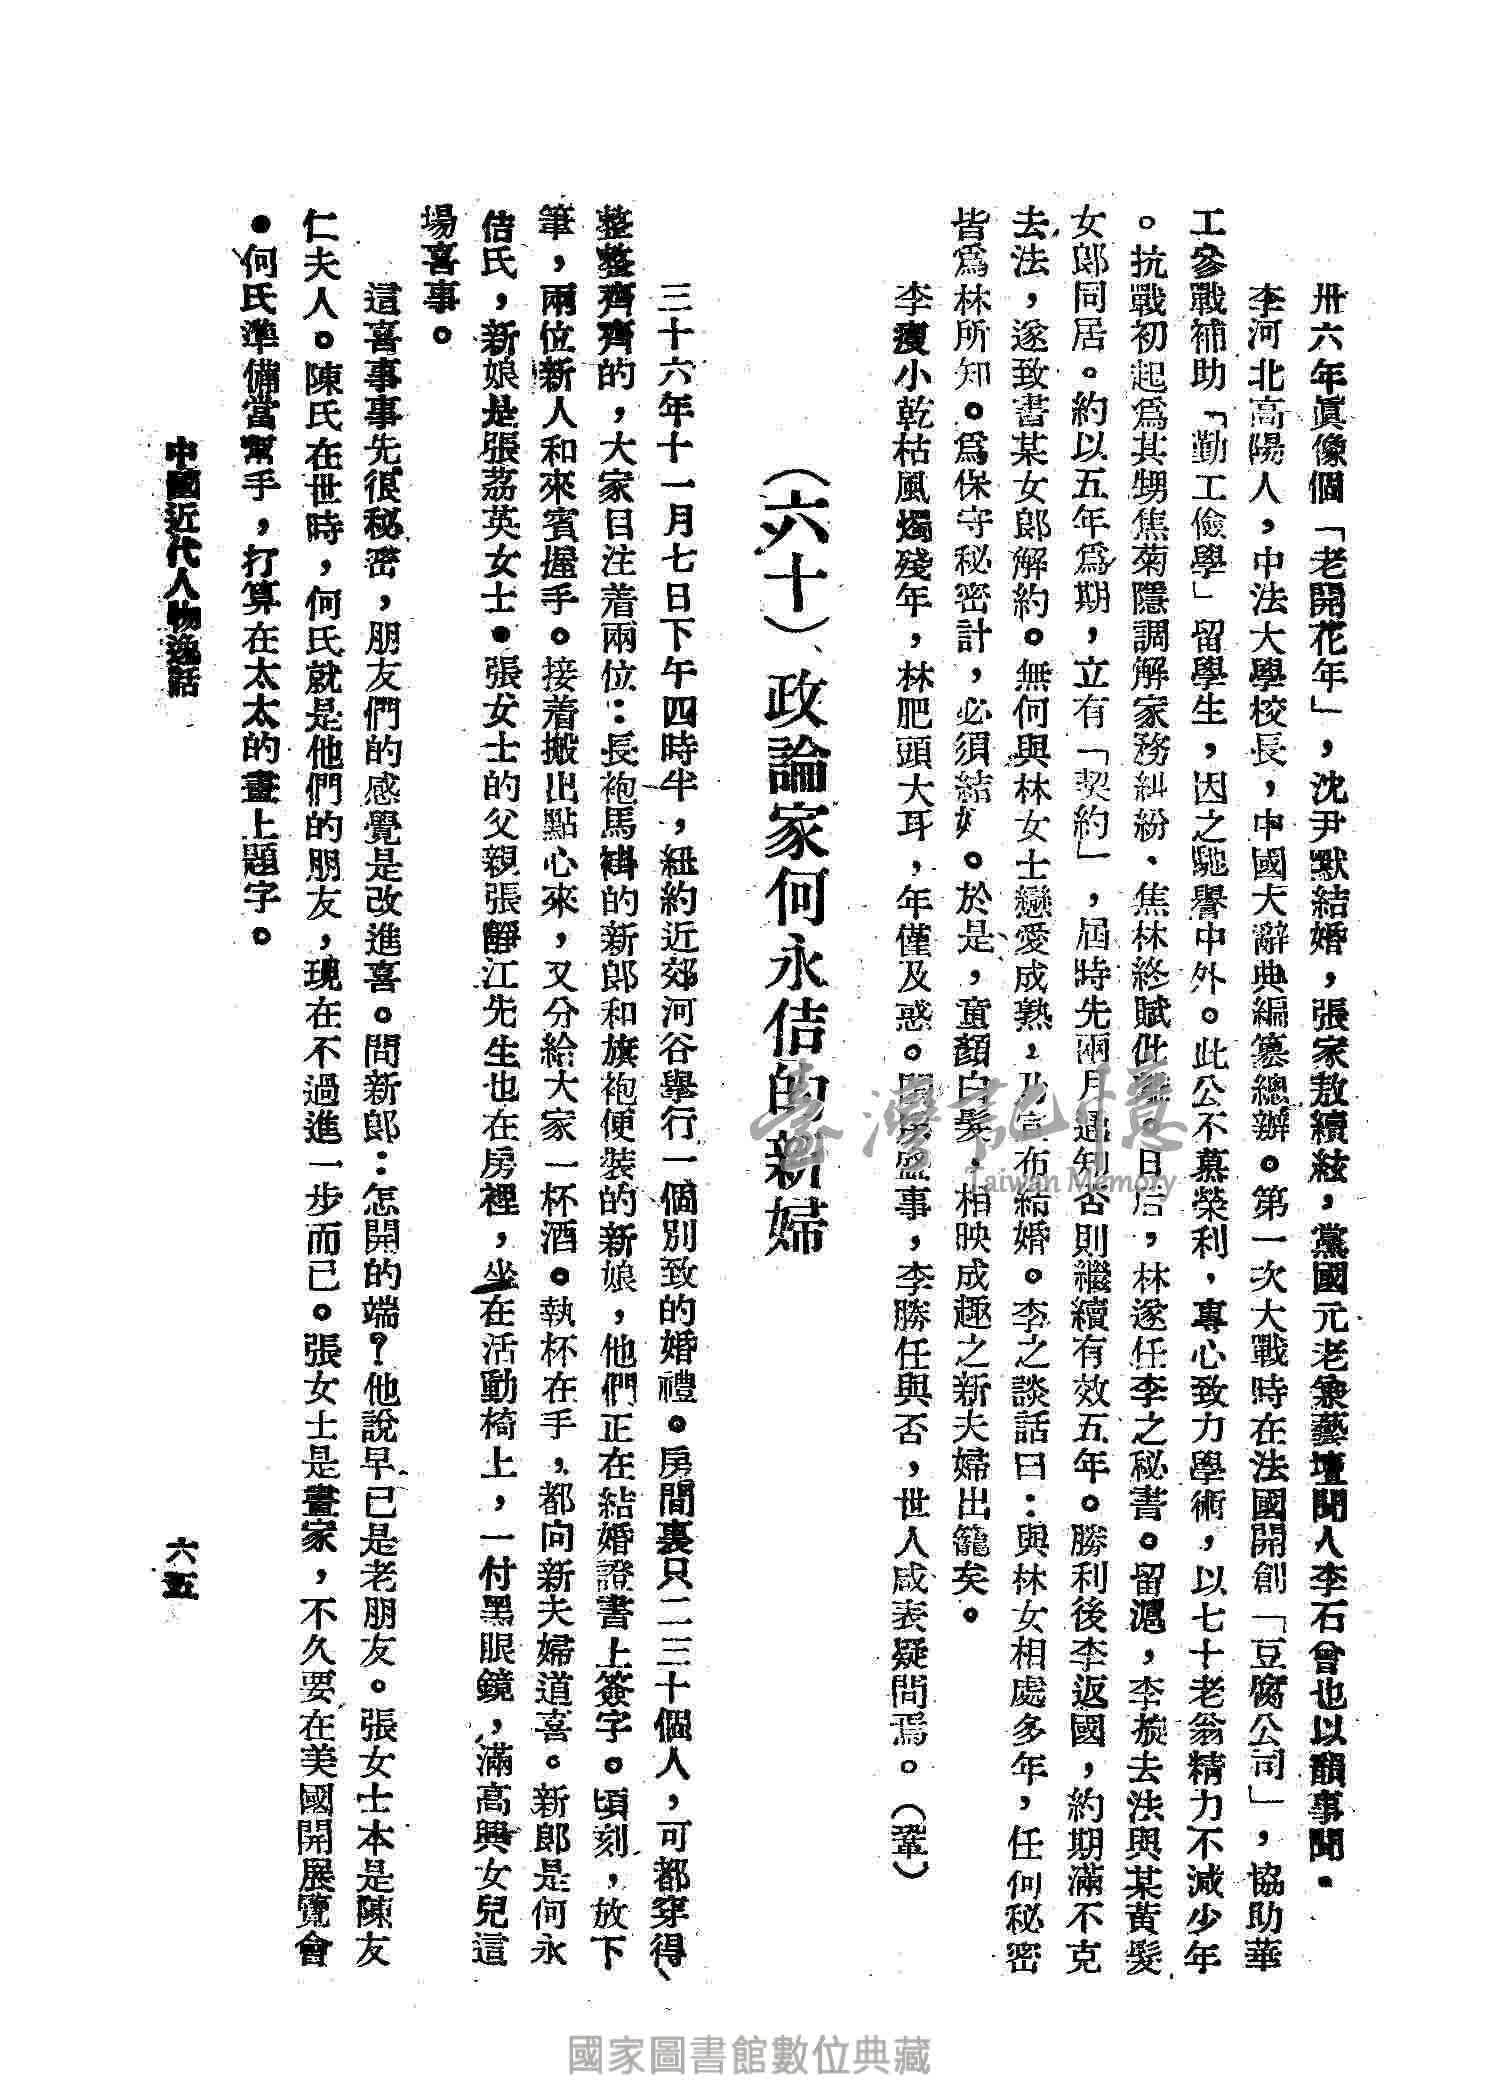 卅六年眞像個「老開花年」，沈尹默結婚，張家敖續絃，黨國元老兼藝壇聞人李石曾也以韻事聞。
李河北高陽人，中法大學校長，中國大辭典編纂總辦。第一次大戰時在法國開創「豆腐公司」，協助華
工參戰補助「勤工儉學」留學生，因之馳譽中外。此公不慕榮利，專心致力學術，以七十老翁精力不減少年
。抗戰初起爲其甥焦菊隱調解家務糾紛、焦林終賦仳離。日后，林遂任李之秘書。留滬，李旋去法與某黃髮
女郎同居。約以五年爲期，立有「契約」，屆時先兩月通知否則繼續有效五年。勝利後李返國，約期滿不克
去法，遂致書某女郎解約。無何與林女士戀愛成熟，乃宣布結婚。李之談話曰：與林女相處多年，任何秘密
皆爲林所知。爲保守秘密計，必須結好。於是，童顏白髮、相映成趣之新夫婦出籠矣。
李瘦小乾枯風燭殘年，林肥頭大耳，年僅及惑。閨房盛事，李勝任與否，世人咸表疑問焉。（鞏）
（六十）、政論家何永佶的新婦
三十六年十一月七日下午四時半，紐約近郊河谷舉行一個別致的婚禮。房間裏只二三十個人，可都穿得
整整齊齊的，大家目注着兩位：長袍馬褂的新郎和旗袍便裝的新娘，他們正在結婚證書上簽字。頃刻，放下
筆，兩位新人和來賓握手。接着搬出點心來，又分給大家一杯酒。執杯在手，都向新夫婦道喜。新郎是何永
佶氏，新娘是張荔英女士。張女士的父親張靜江先生也在房裡，坐在活動椅上，一付黑眼鏡，滿高興女兒這
場喜事。
這喜事事先很秘密，朋友們的感覺是改進喜。問新郎：怎開的端？他說早已是老朋友。張女士本是陳友
仁夫人。陳氏在世時，何氏就是他們的朋友，現在不過進一步而已。張女士是畫家，不久要在美國開展覽會
。何氏準備當幫手，打算在太太的畫上題字。
中國近代人物逸話
六五
臺灣記憶
Taiwan Memory
國家圖書館數位典藏